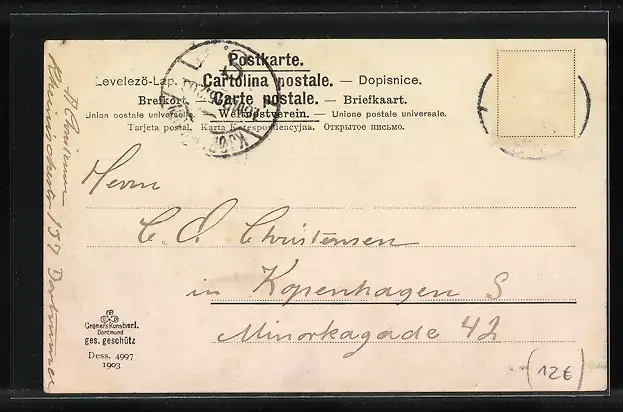 Postkarte.
Levelezö-Lap. Cartolina postale. — Dopisnice.
Brefkort. — Carte postale. — Briefkaart.
Union postale universelle. Weltpostverein. — Unione postale universale.
Tarjeta postal. Karta Korespondencyjna. Открытое письмо.
Herrn
C. O. Christensen
in Kopenhagen S
Minorkagade 42
A Christensen
157 Dortmund
Cramers Kunstverl.
Dortmund
ges. geschütz
Dess. 4997
1903
(12€)